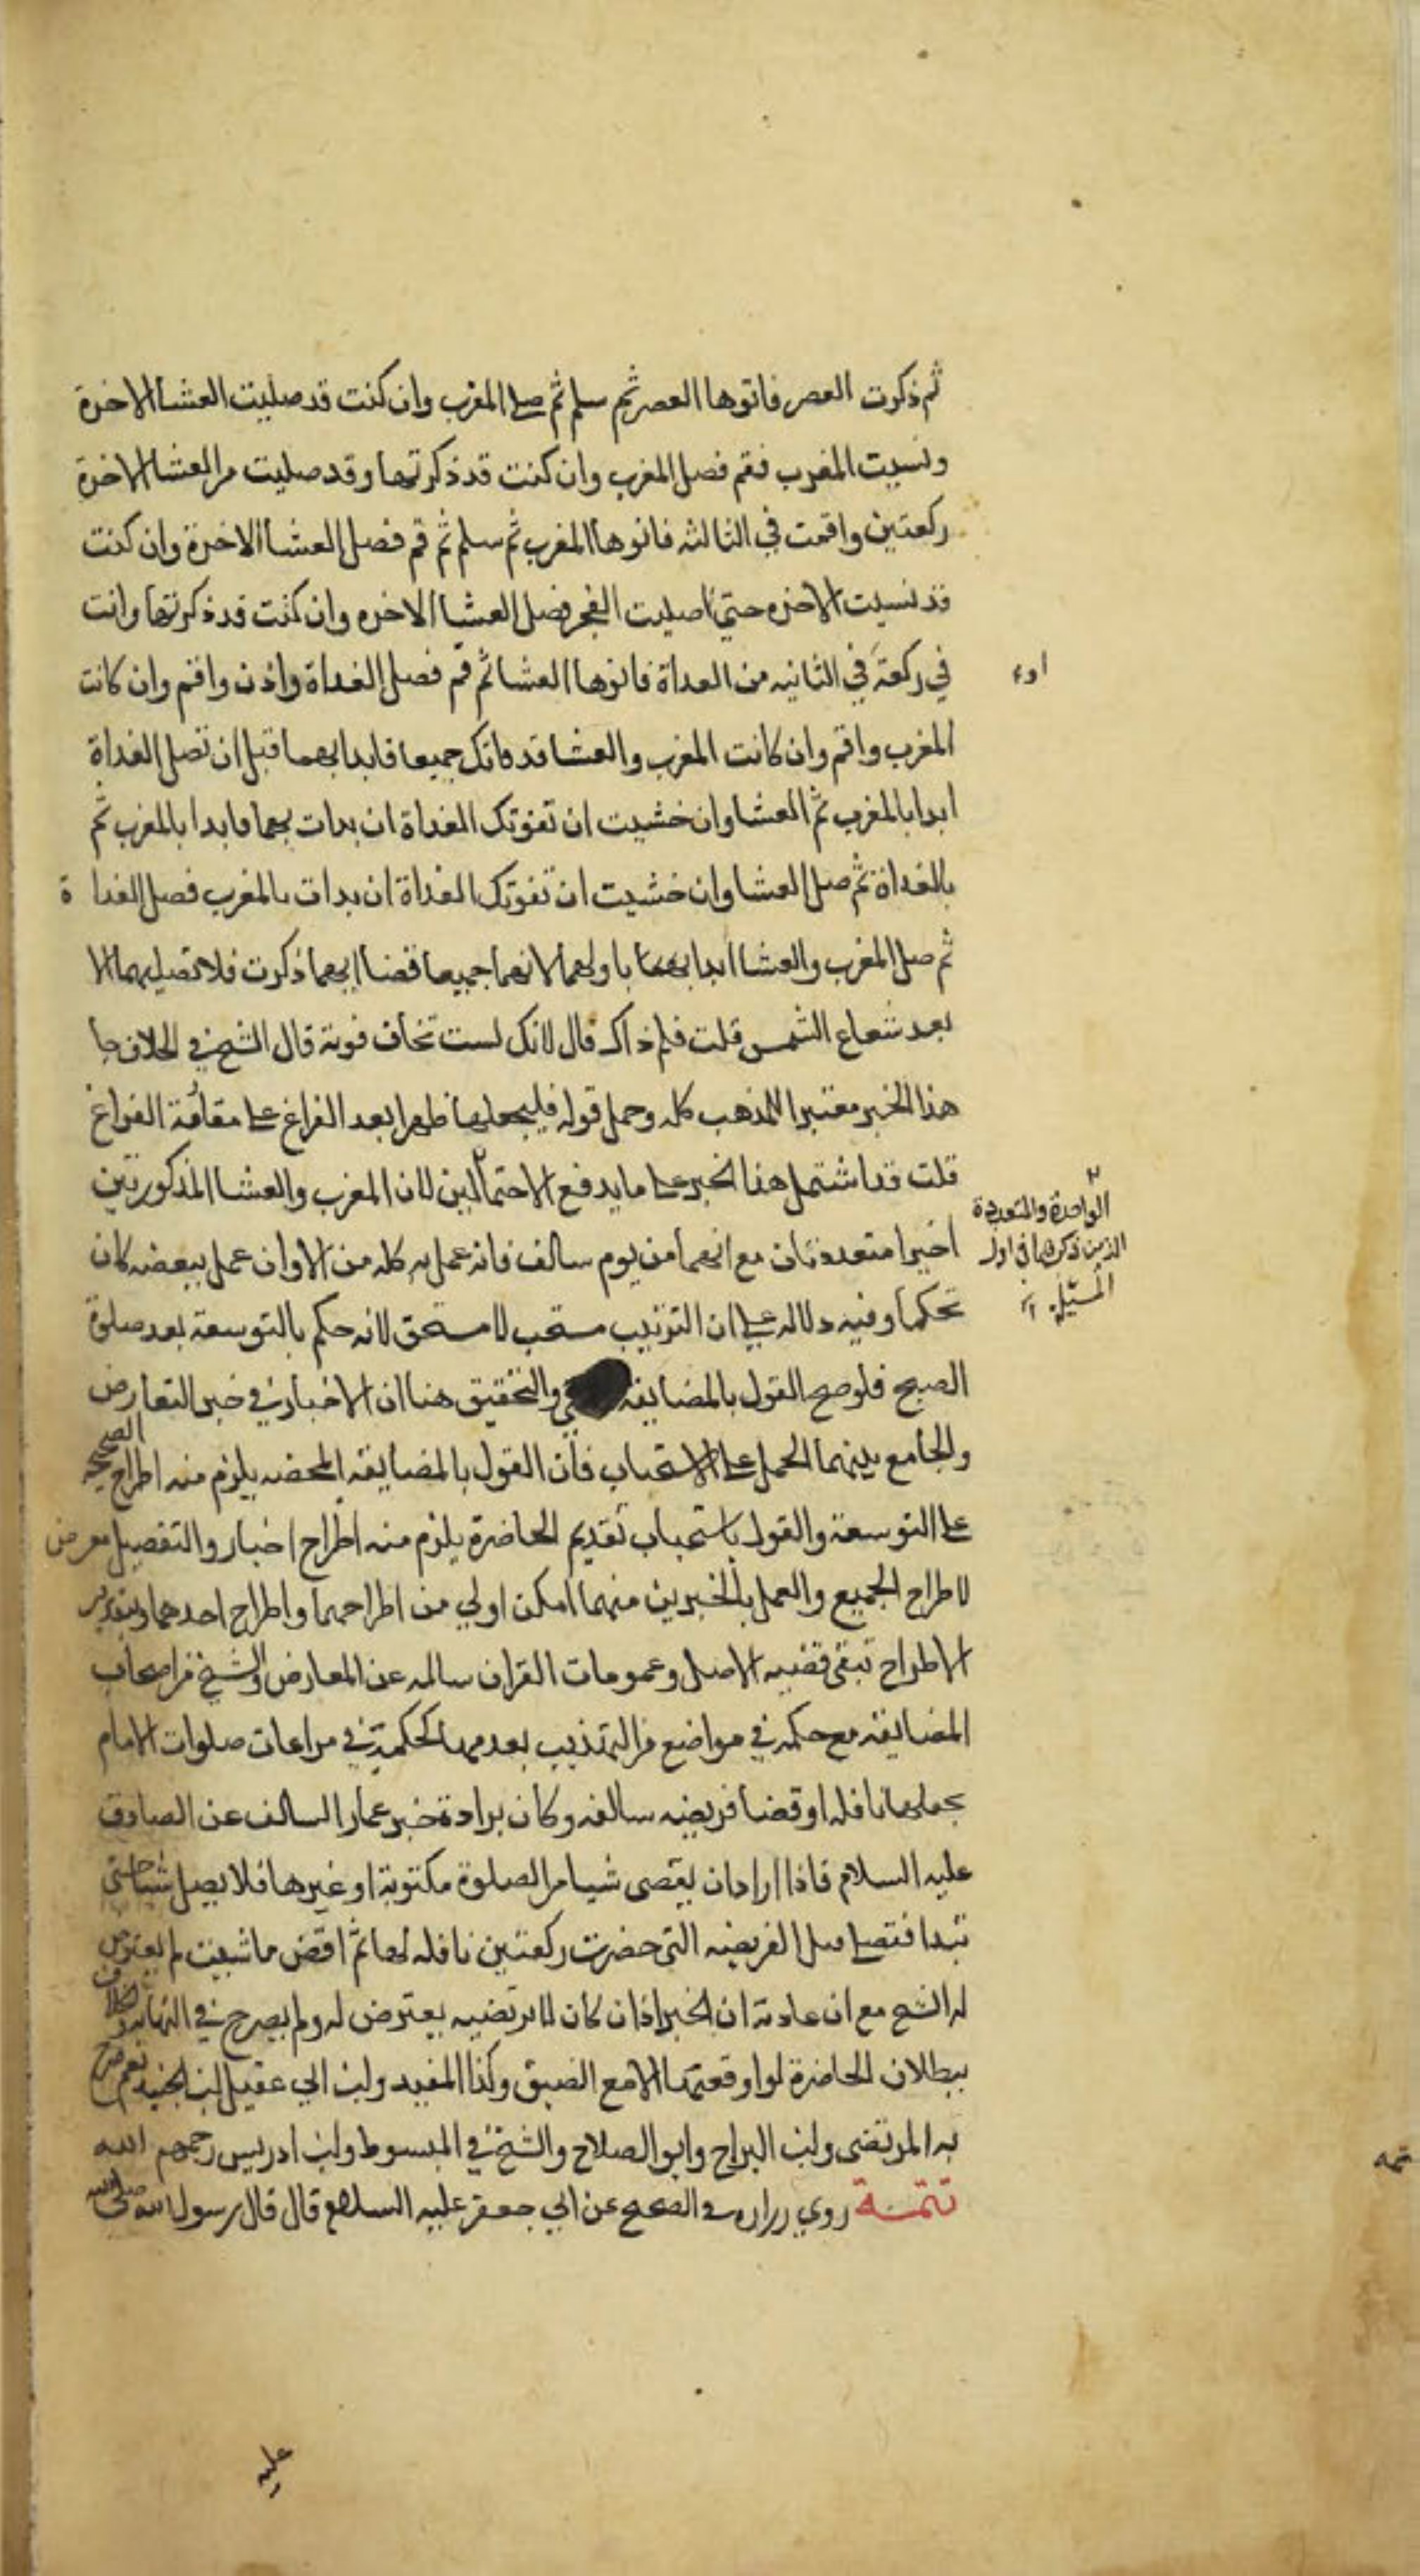 ثم ذكرت العصر فانوها العصر ثم سلم ثم صل المغرب وان كنت قد صليت العشا الاخرة
ونسيت المغرب فقم فصل المغرب وان كنت قد ذكرتها وقد صليت من العشا الاخرة
ركعتين واقمت في الثالثه فانوها المغرب ثم سلم ثم قم فصل العشا الاخرة وان كنت
قد نسيت الاخره حتى صليت الفجر فصل العشا الاخره وان كنت قد ذكرتها وانت
في ركعة في الثانيه من الغداة فانوها العشا ثم قم فصل الغداة واذن واقم وان كانت
اوء
المغرب واقم وان كانت المغرب والعشا قد فاتك جميعا فابدا بهما قبل ان تصل الغداة
ابدا بالمغرب ثم العشا وان خشيت ان تفوتك الغداة ان بدات بهما فابدا بالمغرب ثم
بالغداة ثم صل العشا وان خشيت ان تفوتك الغداة ان بدات بالمغرب فصل الغداة
ثم صل المغرب والعشا ابدا باولهما لانهما جميعا قضا ايهما ذكرت فلا تصليهما الا
بعد شعاع الشمس قلت فلم ذاك قال لانك لست تخاف فوته قال الشيخ في الخلاف جا
هذا الخبر مفسرا للمذهب كله وحمل قوله فليجعلها ظهرا بعد الفراغ على مقاربة الفراغ
قلت قد اشتمل هذا الخبر على ما يدفع الاحتمالين لان المغرب والعشا المذكورتين
الواحدة والمتعددة
الذين ذكرهما في اول
المسئلة
اخيرا متعددتان مع انهما من يوم سالف فان عمل به كله من الاوان عمل ببعضه كان
تحكما وفيه دلاله على ان الترتيب مستحب لا مستحق لانه حكم بالتوسعة بعد صلوة
الصبح فلو صح القول بالمضايقه والتحقيق هنا ان الاخبار في خبر التعارض
والجامع بينهما الحمل على الاستحباب فان القول بالمضايقه المحضه يلزم منه اطراح الصحيحه
على التوسعة والقول باستحباب تقديم الحاضرة يلزم منه اطراح اخبار والتفصيل معرض
لاطراح الجميع والعمل بالخبرين مهما امكن اولي من اطراحهما واطراح احدهما وبتقدير
الاطراح تبقى قضيه الاصل وعمومات القران سالمه عن المعارض والشيخ من اصحاب
المضايقه مع حكمه في مواضع من التهذيب بعدمها لحكمه في مراعات صلوات الامام
بجعلها نافله او قضا فريضه سالفه وكان براده خبر عمار السالف عن الصادق
عليه السلام فاذا اراد ان يقضى شيا من الصلوة مكتوبة او غيرها فلا يصل شيا حتى
تبدا فتصلي قبل الفريضه التي حضرت ركعتين نافله لها ثم اقض ما شيت لم يعترض
له الشيخ مع ان عادته ان الخبر اذا كان لا يرتضيه يعترض له ولم يصرح في النهايه والخلاف
ببطلان الحاضرة لو اوقعتها الا مع الضيق وكذا المفيد وابن ابي عقيل وابن الجنيد نعم صرح
به المرتضى وابن البراج وابو الصلاح والشيخ في المبسوط وابن ادريس رحمهم الله
تتمة روي زراره في الصحيح عن ابي جعفر عليه السلام قال قال رسول الله صلى الله
تتمه
عليه